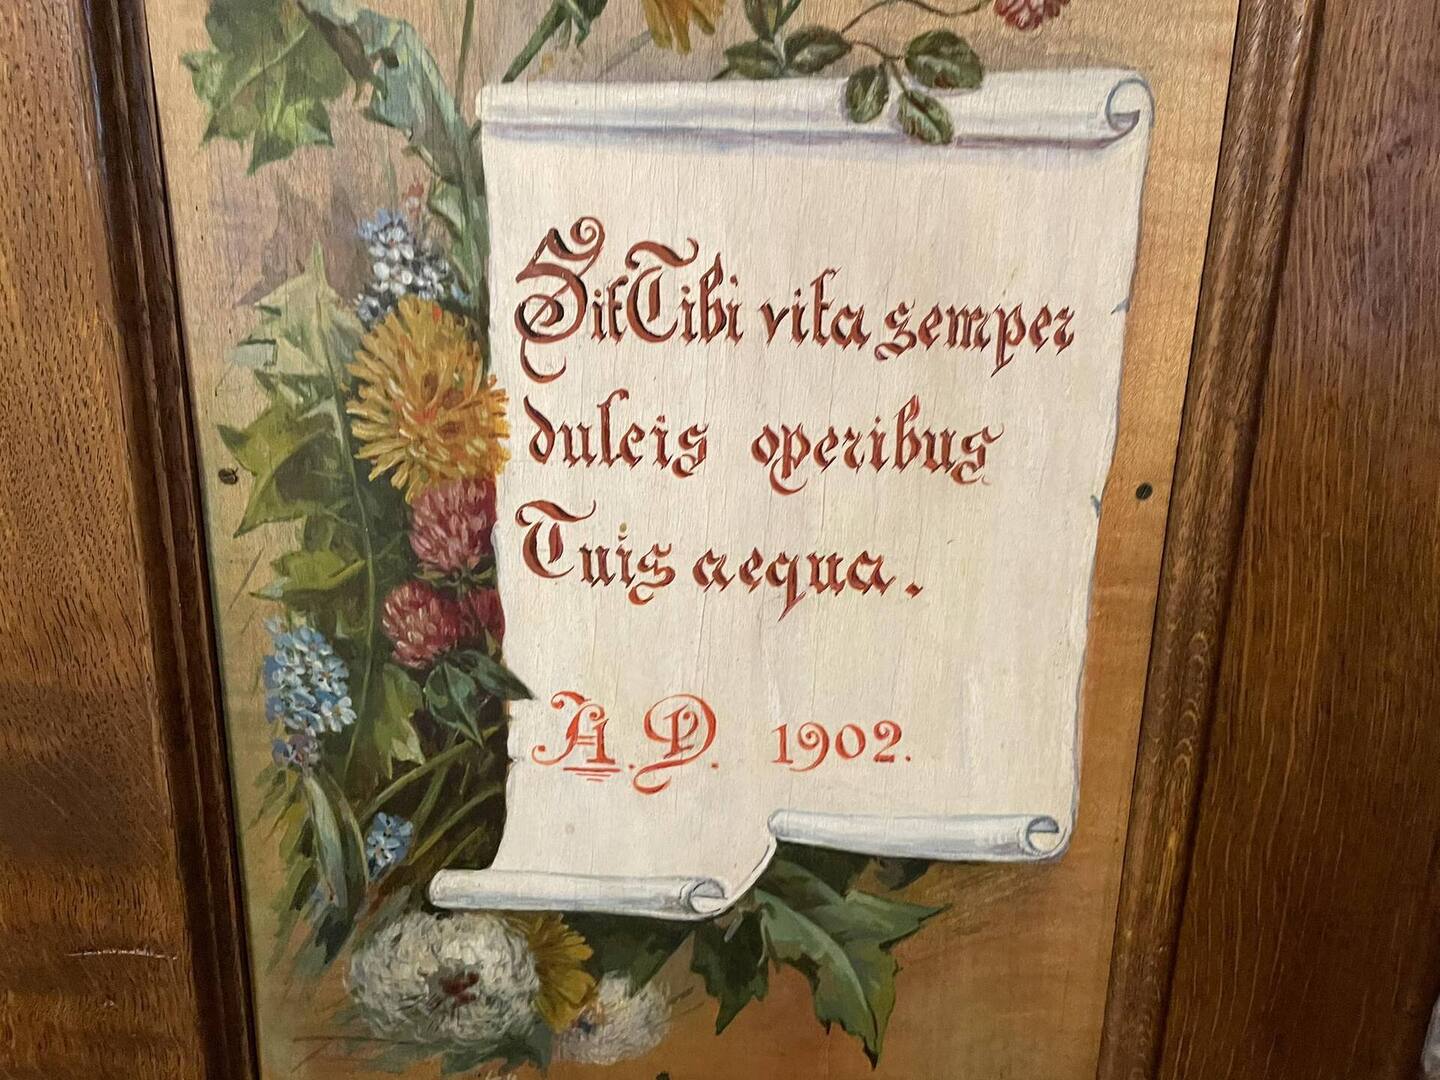 Sit Tibi vita semper
dulcis operibus
Tuis aequa.
A.D. 1902.